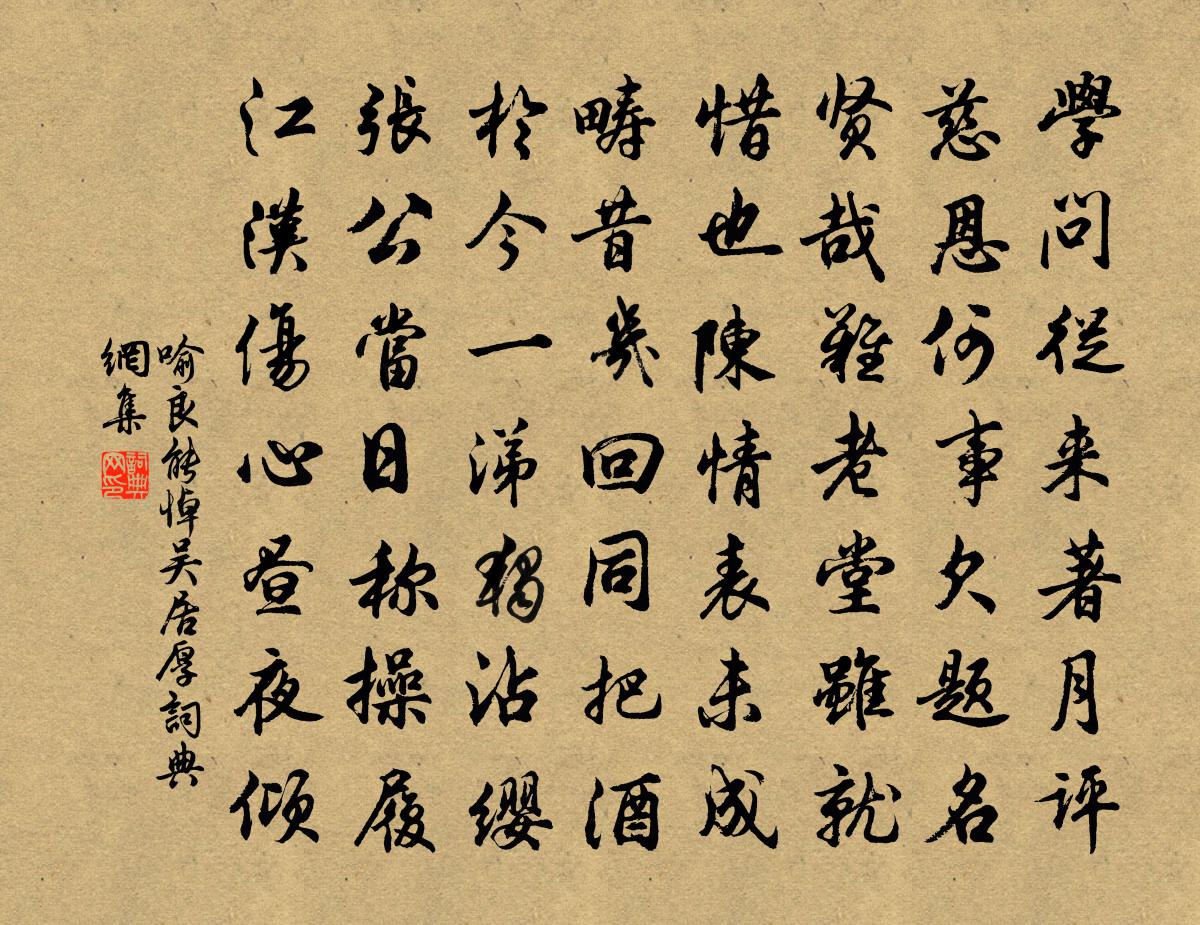 學問從来著月评
慈恩何事欠题名
贤哉難老堂雖就
惜也陳情表未成
畴昔幾回同把酒
於今一涕獨沾纓
張公當日称操履
江漢傷心昼夜倾
喻良能悼吴居厚詞典
網集
詞典网印